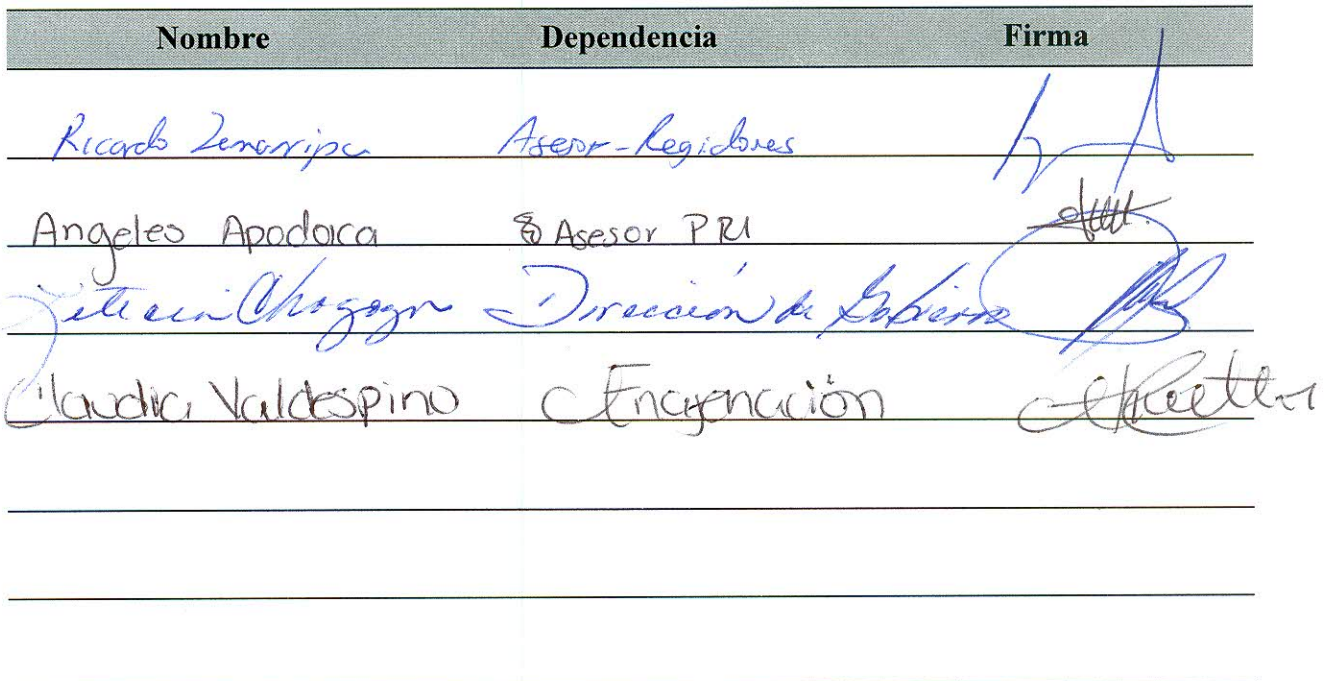 Nombre Dependencia Firma
Ricardo Zemarripa Asesor-Regidores
Angeles Apodaca Asesor PRI
Leticia Dirección de Gobierno
Claudia Valdespino Enagenación